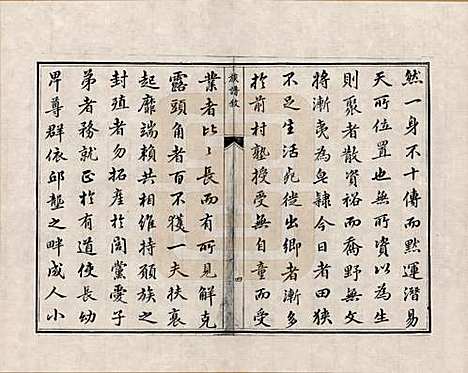 然一身不十傳而默運潛易
天所位置也無所資以為生
則聚者散資裕而喬野無文
將漸夷為皂隸今日者田狹
不足生活宛徙出鄉者漸多
於前村塾授受無自童而受
族譜敘
四
業者比比長而有所見解克
露頭角者百不獲一夫扶衰
起靡端賴共相維持願族之
封殖者勿拓產於閭黨愛子
弟者務就正於有道使長幼
畀尊群依邱壟之畔成人小